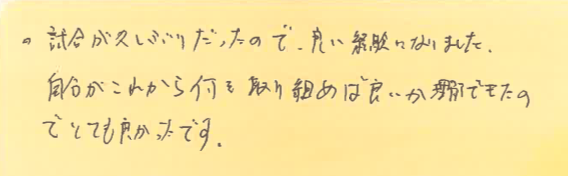 。試合が久しぶりだったので、良い経験になりました。
自分がこれから何を取り組めば良いか理解できたの
でとても良かったです。